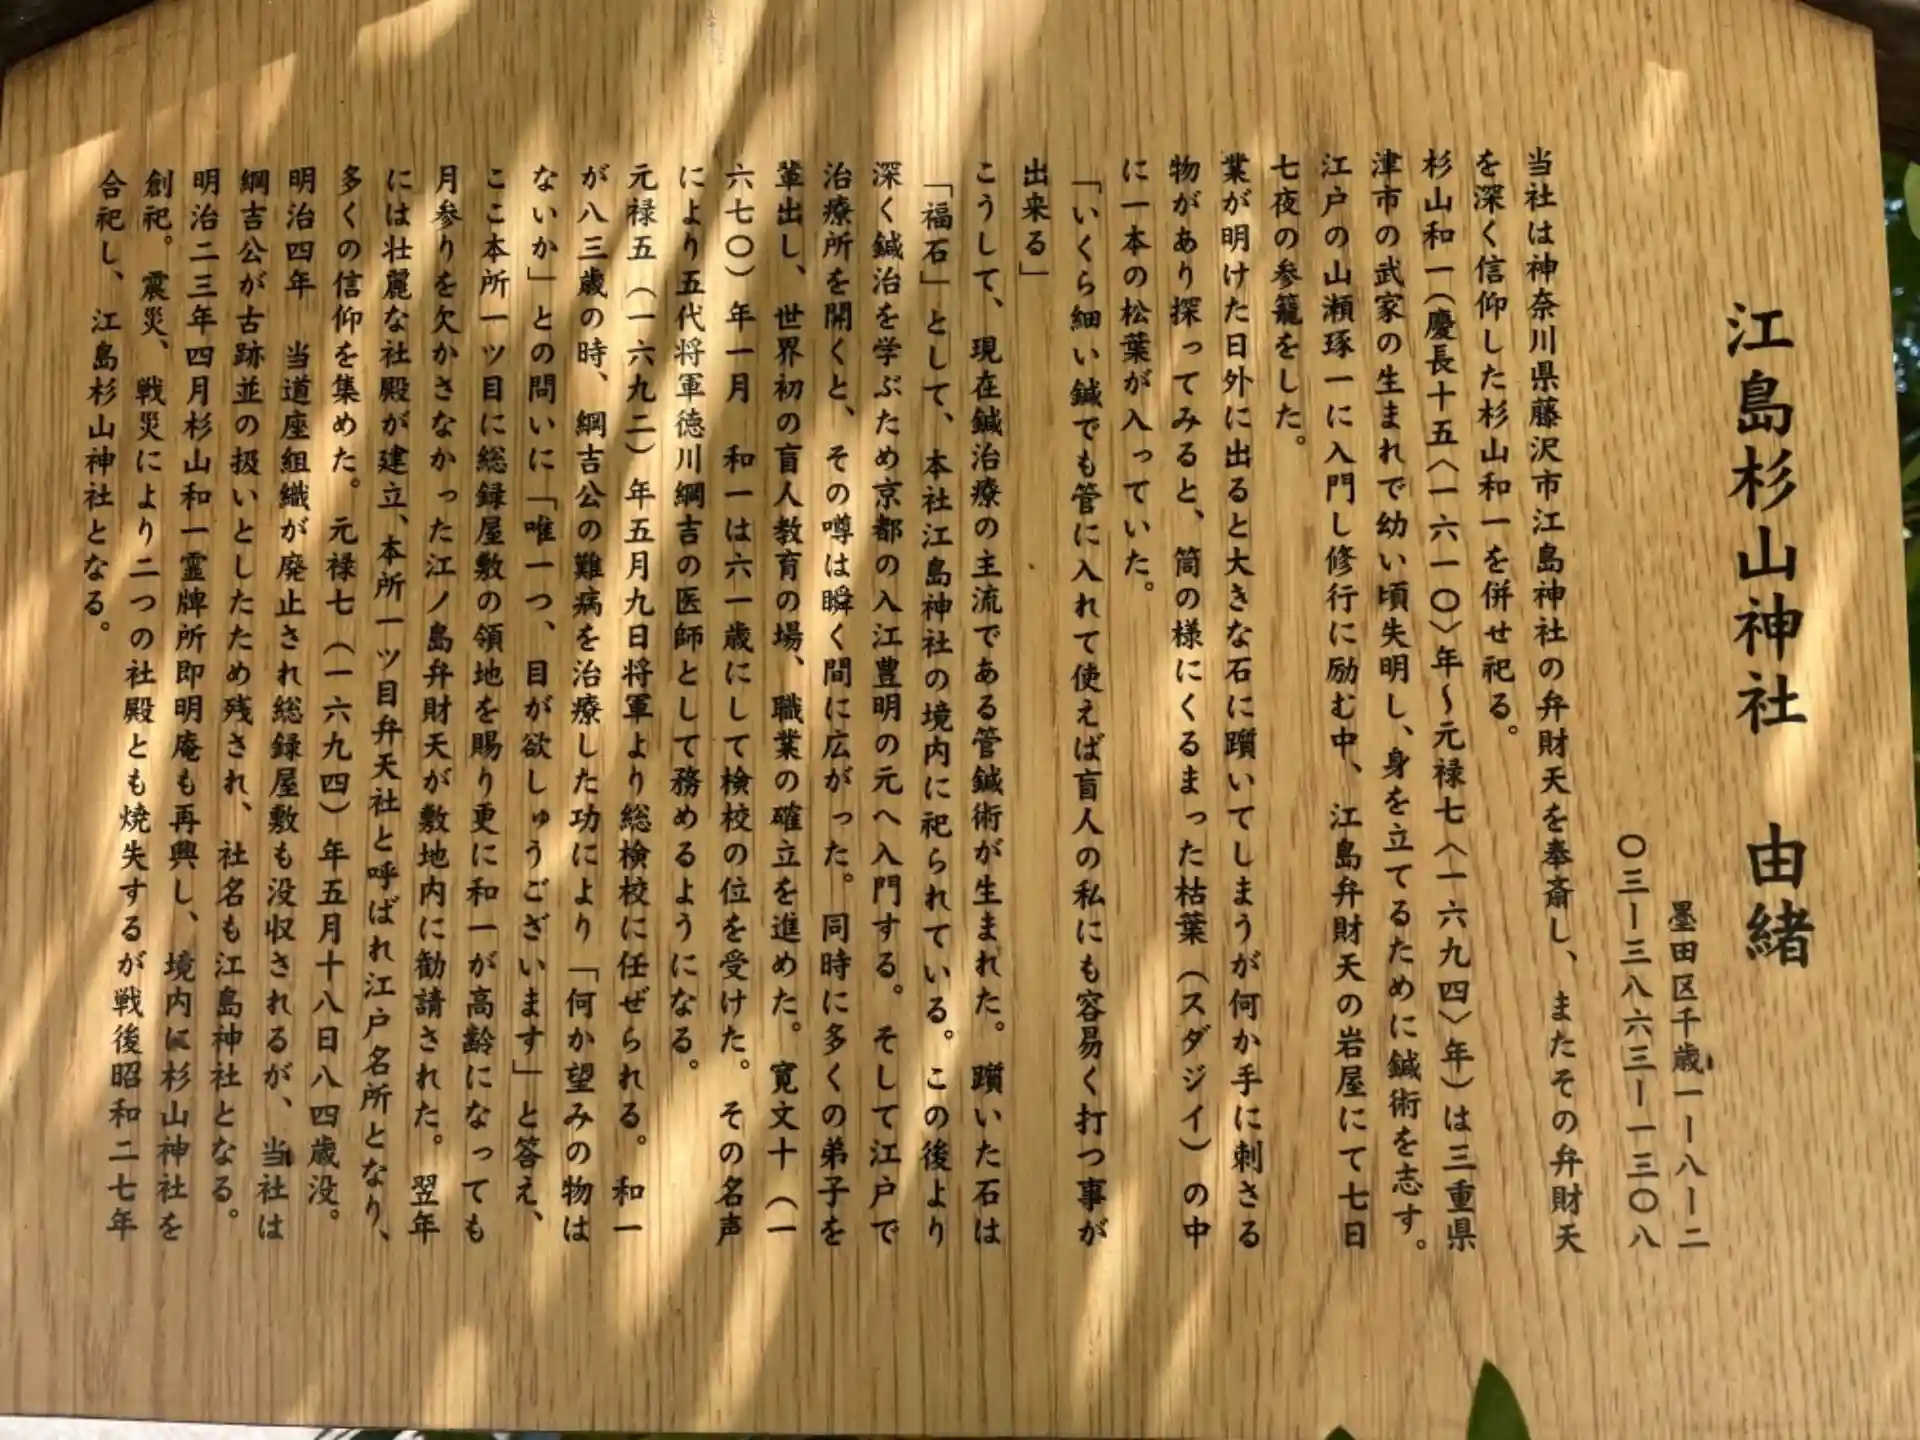 江島杉山神社　由緒
墨田区千歳一ー八ー二
〇三ー三八六三ー一三〇八
当社は神奈川県藤沢市江島神社の弁財天を奉斎し、またその弁財天
を深く信仰した杉山和一を併せ祀る。
杉山和一(慶長十五〈一六一〇〉年〜元禄七〈一六九四〉年)は三重県
津市の武家の生まれで幼い頃失明し、身を立てるために鍼術を志す。
江戸の山瀬琢一に入門し修行に励む中、江島弁財天の岩屋にて七日
七夜の参籠をした。
業が明けた日外に出ると大きな石に躓いてしまうが何か手に刺さる
物があり探ってみると、筒の様にくるまった枯葉（スダジイ）の中
に一本の松葉が入っていた。
「いくら細い鍼でも管に入れて使えば盲人の私にも容易く打つ事が
出来る」
こうして、現在鍼治療の主流である管鍼術が生まれた。躓いた石は
「福石」として、本社江島神社の境内に祀られている。この後より
深く鍼治を学ぶため京都の入江豊明の元へ入門する。そして江戸で
治療所を開くと、その噂は瞬く間に広がった。同時に多くの弟子を
輩出し、世界初の盲人教育の場、職業の確立を進めた。寛文十（一
六七〇）年一月　和一は六一歳にして検校の位を受けた。その名声
により五代将軍徳川綱吉の医師として務めるようになる。
元禄五（一六九二）年五月九日将軍より総検校に任ぜられる。和一
が八三歳の時、綱吉公の難病を治療した功により「何か望みの物は
ないか」との問いに「唯一つ、目が欲しゅうございます」と答え、
ここ本所一ツ目に総録屋敷の領地を賜り更に和一が高齢になっても
月参りを欠かさなかった江ノ島弁財天が敷地内に勧請された。翌年
には壮麗な社殿が建立、本所一ツ目弁天社と呼ばれ江戸名所となり、
多くの信仰を集めた。元禄七（一六九四）年五月十八日八四歳没。
明治四年　当道座組織が廃止され総録屋敷も没収されるが、当社は
綱吉公が古跡並の扱いとしたため残され、社名も江島神社となる。
明治二三年四月杉山和一霊牌所即明庵も再興し、境内に杉山神社を
創祀。震災、戦災により二つの社殿とも焼失するが戦後昭和二七年
合祀し、江島杉山神社となる。